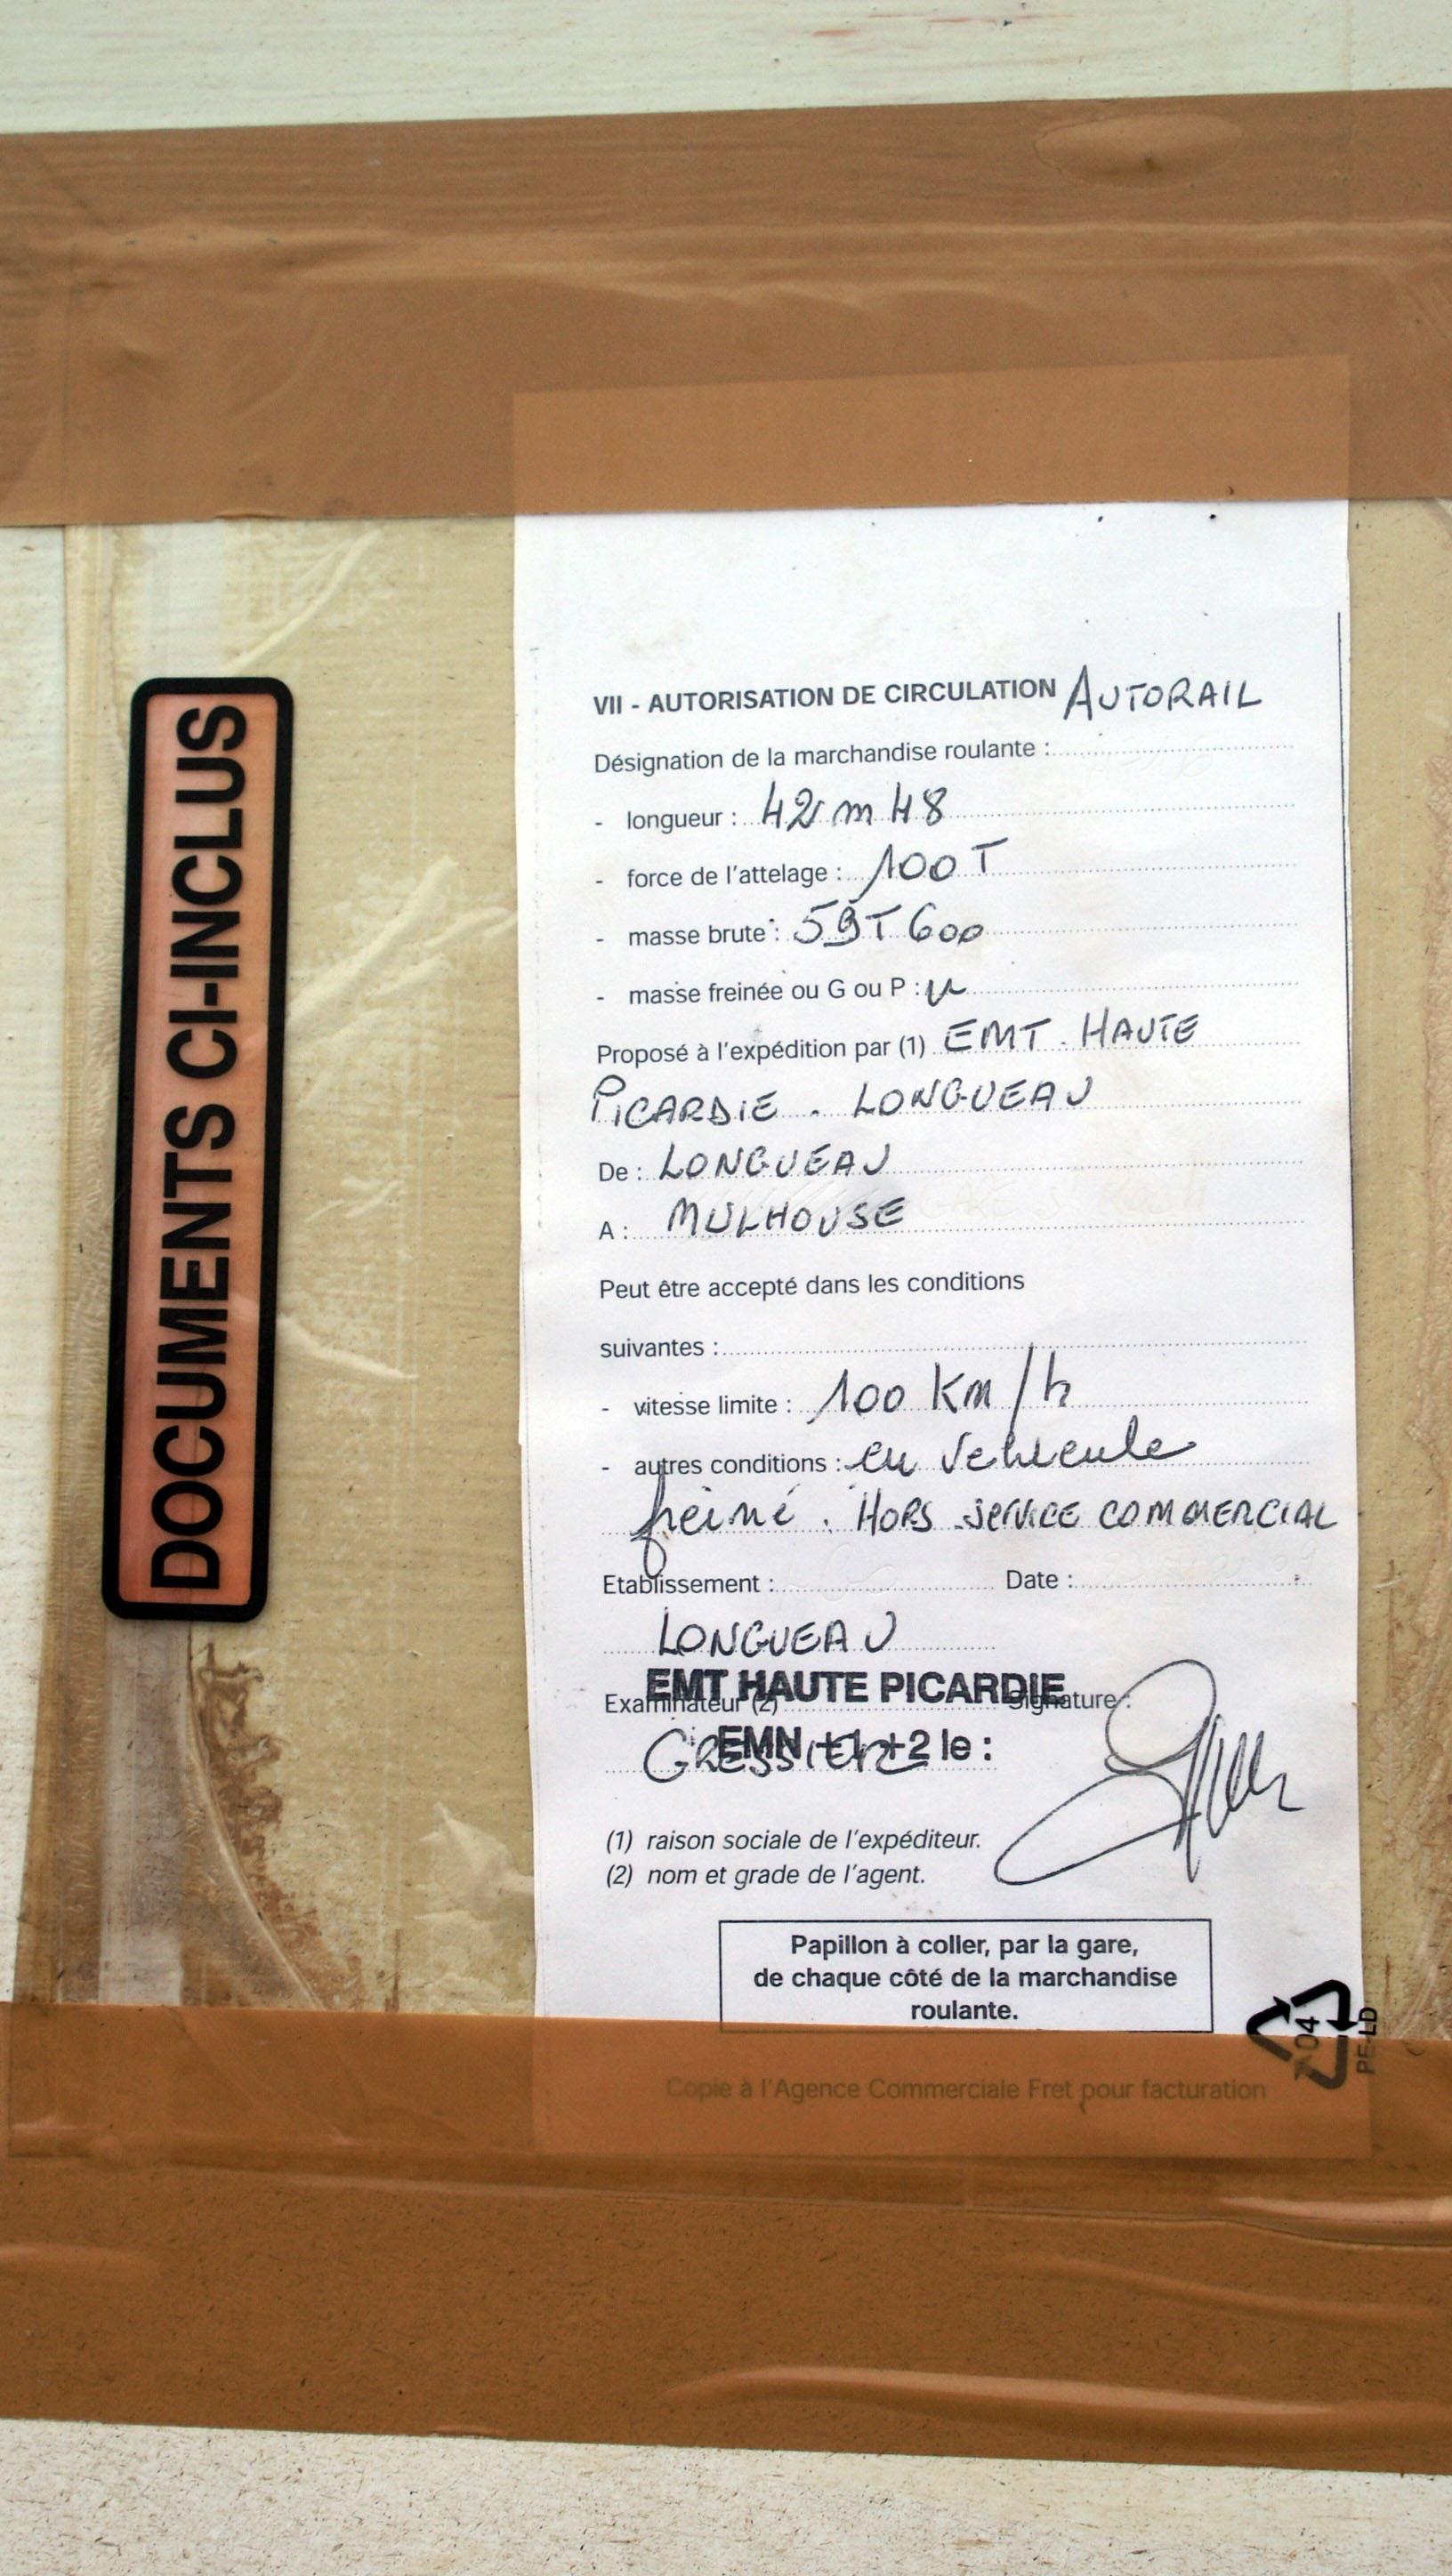 DOCUMENTS CI-INCLUS
VII - AUTORISATION DE CIRCULATION AUTORAIL
Désignation de la marchandise roulante :
- longueur : 42m48
- force de l'attelage : 100 T
- masse brute : 59T600
- masse freinée ou G ou P :
Proposé à l'expédition par (1) EMT . HAUTE
PICARDIE . LONGUEAU
De : LONGUEAU
A : MULHOUSE
Peut être accepté dans les conditions
suivantes :
- vitesse limite : 100 Km/h
- autres conditions : en vehicule
freiné . HORS SERVICE COMMERCIAL
Etablissement : Date :
LONGUEAU
EMT HAUTE PICARDIE
Examinateur (2) Signature :
GRESSIER
EMN +1 +2 le :
(1) raison sociale de l'expéditeur.
(2) nom et grade de l'agent.
Papillon à coller, par la gare,
de chaque côté de la marchandise
roulante.
04
PE-LD
Copie à l'Agence Commerciale Fret pour facturation